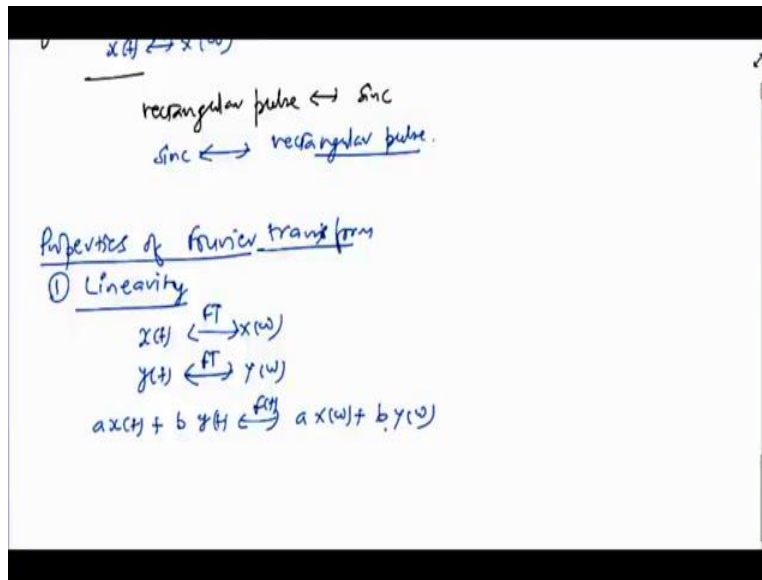 x(t) ↔ x(ω)
rectangular pulse ↔ sinc
sinc ↔ rectangular pulse.
Properties of Fourier transform
① Linearity
x(t) ↔ FT x(ω)
y(t) ↔ FT y(ω)
ax(t) + b y(t) ↔ a x(ω) + b y(ω)